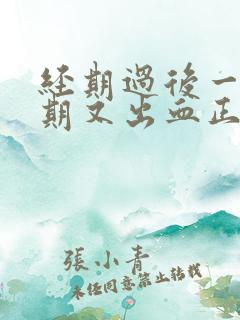 经期過後一
期又出血正
張小青
未经同意禁止转载